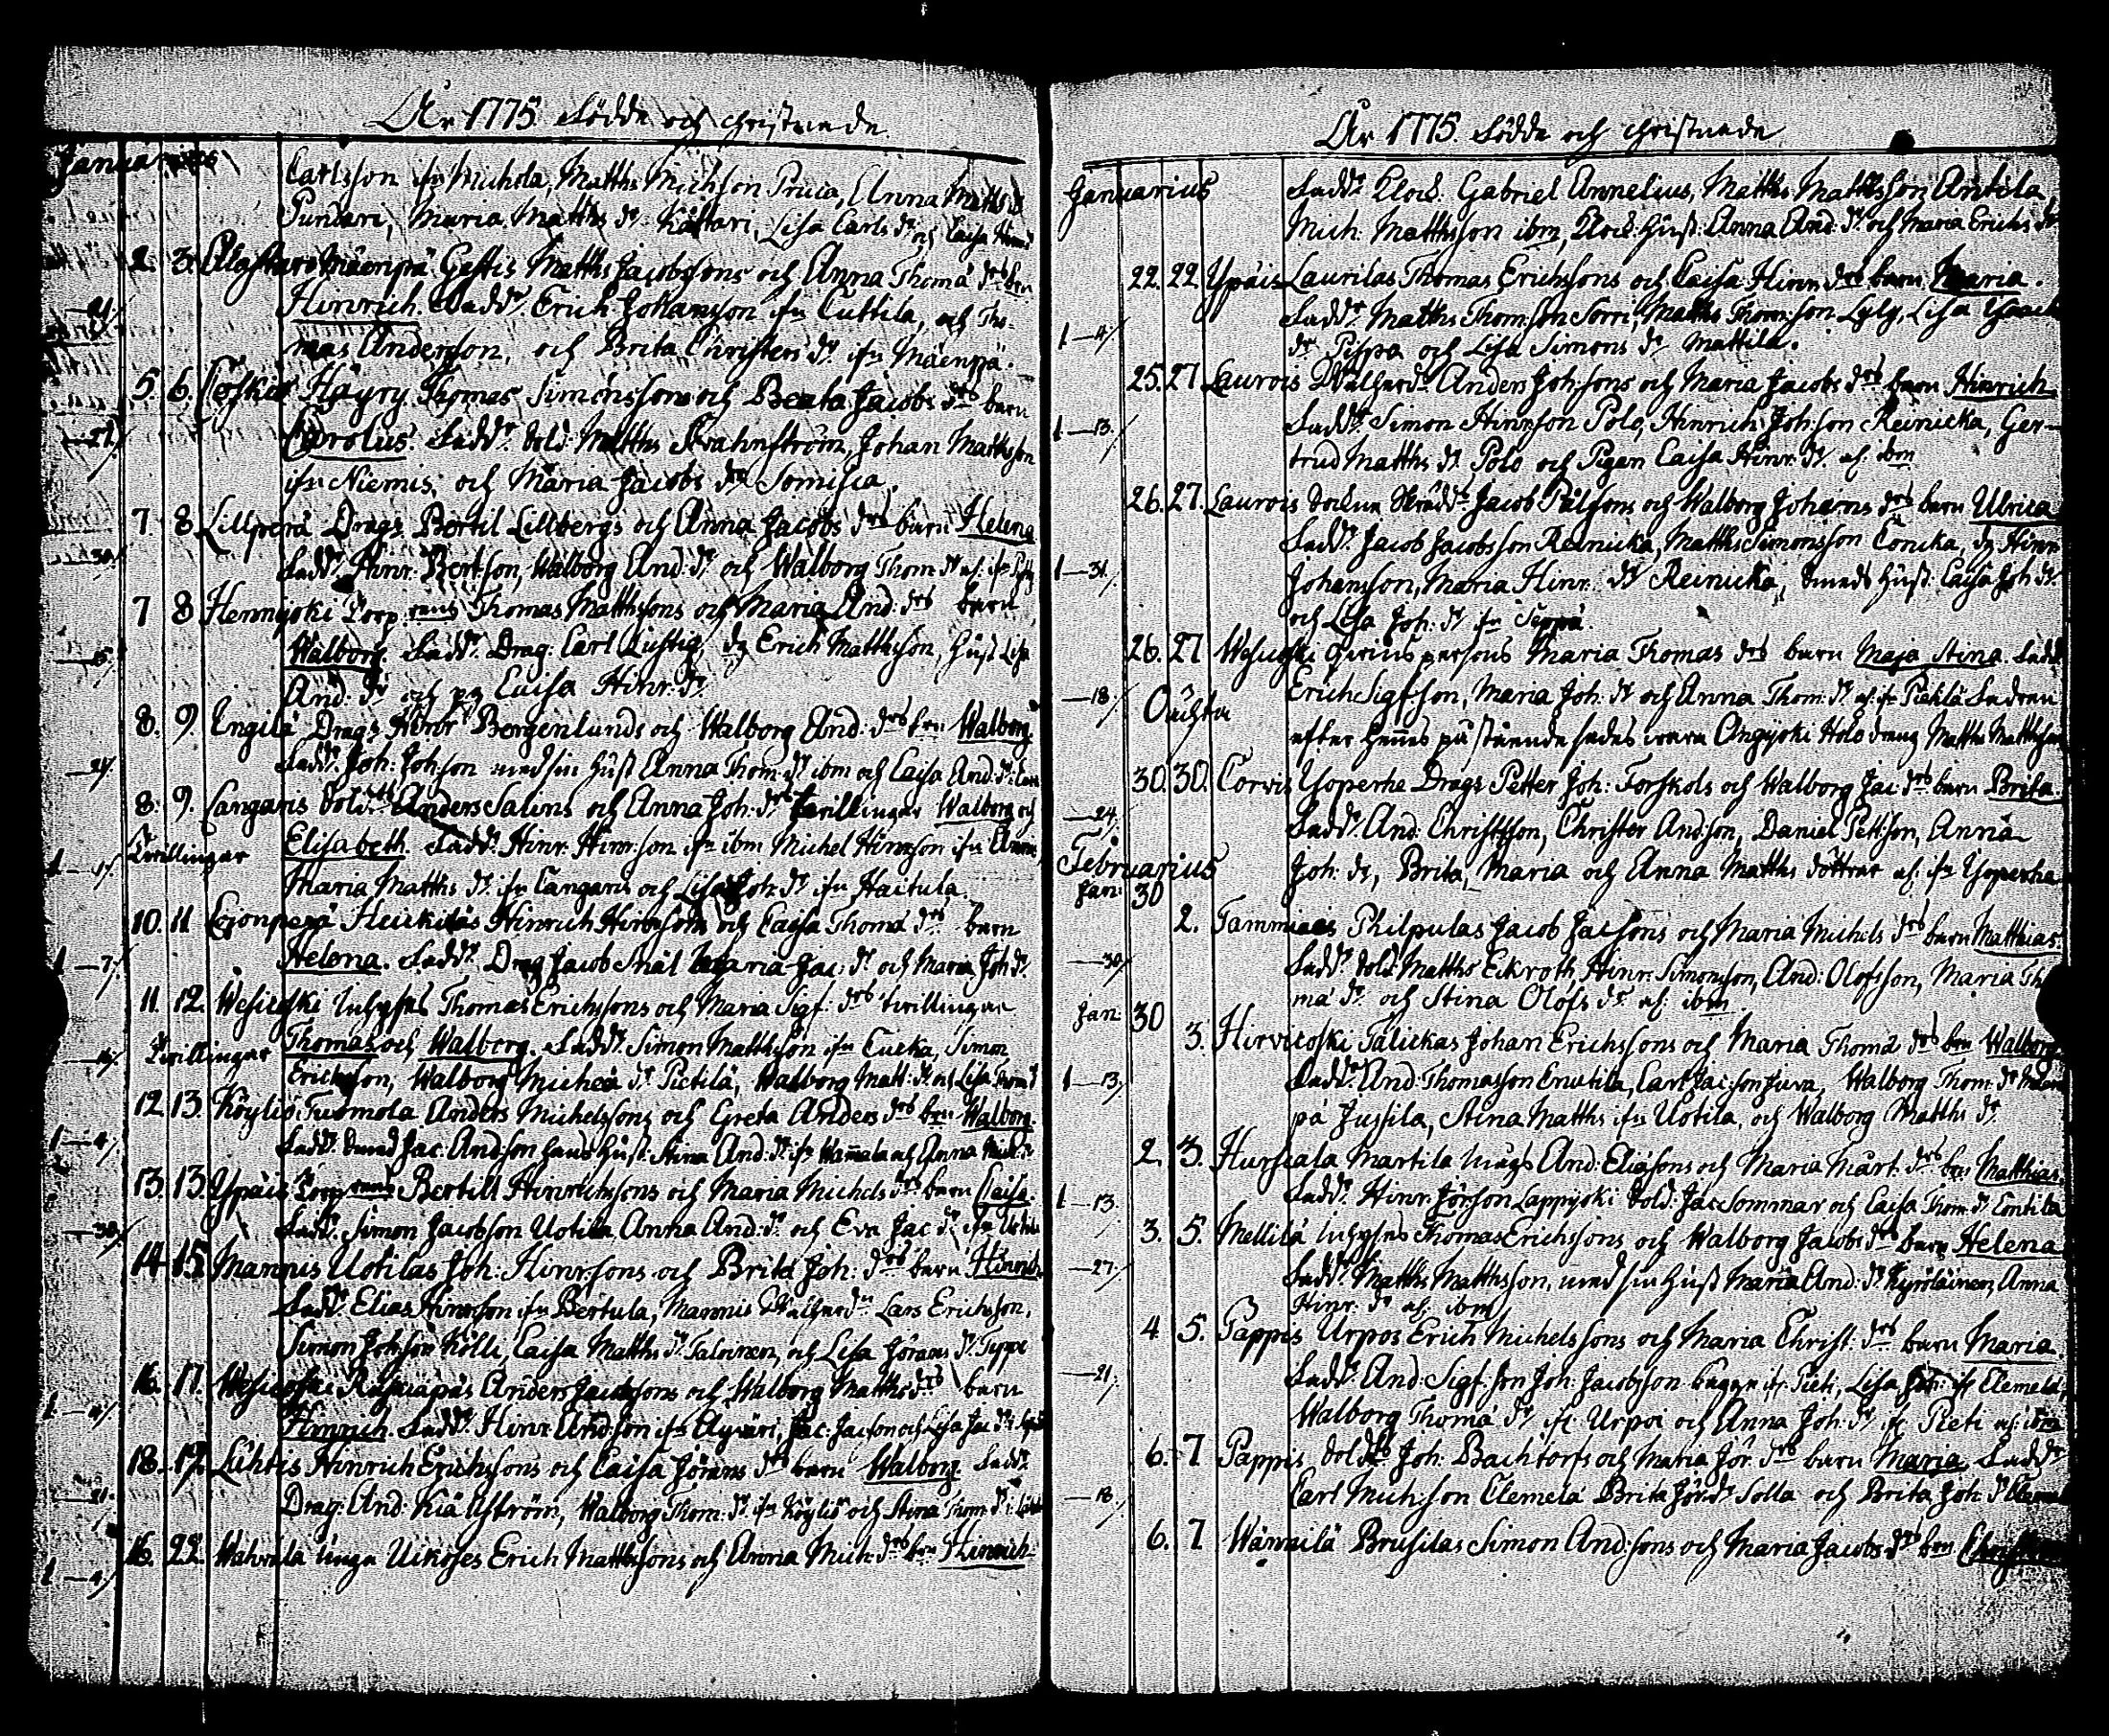 År 1775 Födde och christnade
Januarius
Carlsson ifr Michola, Matths Michson Pruca, Anna Matths dr
Pundari, Maria Matths dr Kattari, Lisa Carls dr och Caisa Hinr dr
2. 3. Alastaro Mäenpä Gästis Matths Jacobssons och Anna Thomä drs brn
—21. Hinrich. Fadd. Erich Johansson ifr Cuttila, och Tho-
mas Andersson, och Brita Christers dr ifr Mäenpä.
5. 6. Coskis Häyry Thomas Simonssons och Beata Jacobs drs barn
—27. Carolus. Fadd. Sold. Matths Frahnström, Johan Mattsson
ifr Niemis, och Maria Jacobs dr Somisia.
7 8 Lillperä Drag. Bertil Lillbergs och Anna Jacobs drs barn Helena
—30. Fadd. Hinr. Bertson, Walborg And. dr och Walborg Thom. dr
7 8 Hennijoki Torp. Thomas Matthssons och Maria And. drs barn
—15. Walborg. Fadd. Drag. Carl Lustig, dg Erich Matthsson, Hust. Lisa
And. dr och pg Caisa Hinr. dr
8. 9. Engilä Drag. Hinr Bergenlunds och Walborg And. drs brn Walborg
—27. Fadd. Joh. Johson med sin hust. Anna Thom. dr ibm och Caisa And. dr
8. 9. Cangaris Sold. Anders Salins och Anna Joh. drs tvillingar Walborg och
Tvillingar Elisabeth. Fadd. Hinr. Hinr.son ifr ibm Michel Hinrson ifr
1 —17. Maria Matths dr ifr Cangaris och Lisa Joh. dr ifr Haitula.
10. 11 Leionperä Heickiläs Hinrich Hinrssons och Caisa Thomä drs barn
1 —7. Helena. Fadd. Drag Jacob Snäl Maria Jac. dr och Maria Joh dr.
11. 12. Wesicoski Inhyses Thomas Erichssons och Maria Sigf. drs tvillingar
—16. Tvillingar Thomas och Walborg. Fadd. Simon Mattsson ifr Cucka, Simon
Ericksson, Walborg Michea dr Pietilä, Walborg Matt. dr och Lisa Thom. dr
12 13. Köyliö Tuomola Anders Michelssons och Greta Anders drs brn Walborg
1 —4. Fadd. Smed Jac. Andson hans hust. Stina And. dr ifr Wannala och Anna Mich. dr
13. 13 Ypäis Torp. Bertill Hinrichssons och Maria Michels drs barn Caisa.
—30. Fadd. Simon Jacobson Uotila Anna And. dr och Eva Jac dr ifr Uotila
14 15. Mannis Uotilas Joh. Hinr.sons och Brita Joh. drs barn Hinrich.
Fadd. Elias Hinrsson ifr Bertula, Mannis Wälherd Lars Erichsson,
Simon Johson Kölli, Caisa Matths dr Taloinen, och Lisa Jörans dr Typpi
16. 17. Wesicoski Raskiapäs Anders Jacobssons och Walborg Matths drs barn
1 —4. Hinrich. Fadd. Hinr. And.son ifr Ayväri, Jac. Jacson och Lisa Jac dr
18. 19. Luhtis Hinrich Erichssons och Caisa Jörans drs barn Walborg. Fadd.
—21. Drag. And. Kiällström, Walborg Thom. dr ifr Köyliö och Stina Thom. dr
16. 22 Wahvala unga Uikoses Erich Matthssons och Anna Mich. drs brn Hinrich.
1 —4.
År 1775. Födde och christnade
Januarius Fadd. Klock. Gabriel Annelius, Matths Matthsson Antila,
Mich. Matthsson ibm, Klock. hust. Anna And. dr och Maria Erichs dr
22. 22. Ypäis Laurilas Thomas Erichssons och Caisa Hinr drs barn Maria.
1 —4. Fadd. Matths Thomson Sorri, Matths Thomson Lyly, Lisa Ysaacs
dr Pippa och Lisa Simons dr Mattila.
25. 27 Laurois Wälherd. Anders Johsons och Maria Jacobs drs barn Hinrich
1 —13. Fadd. Simon Hinrson Polo, Hinrich Joh.son Reinicka, Ger-
trud Matths dr Polo och Pigan Caisa Hinr. dr af ibm
26. 27. Laurois Socken Skrädd. Jacob Pålsons och Walborg Johanns drs barn Ulrica
Fadd. Jacob Jacobsson Reinicka, Matths Simonsson Concka, dg Hinr.
1 —31. Johansson, Maria Hinr. dr Reinicka, Smeds hust. Caisa Joh dr.
och Lisa Joh. dr ifr Seppä.
26. 27 Wesicoski Maria Thomas drs barn Maja Stina. Fadd.
—18. Oächta Erich Sigf.son, Maria Joh. dr och Anna Thom. dr af ifr Piehlä Fadren
efter hennes påstående sades wara Ongijoki Holo dräng Matths Matthsson
30. 30. Corvis Yoperhe Drags Petter Joh. Forskols och Walborg Jac. drs barn Brita.
—24. Fadd. And. Christsson, Christer Andson, Daniel Pettson, Anna
Februarius Joh. dr, Brita, Maria och Anna Matths döttrar af ifr Yoperhe
Jan: 30
2. Tammiais Philpulas Jacob Jacsons och Maria Michels drs barn Matthias.
—30. Fadd. Sold. Matths Eckroth, Hinr. Simonsson, And. Olofsson, Maria Tho-
mä dr och Stina Olofs dr af ibm
Jan: 30
3. Hirvicoski Talickas Johan Erichssons och Maria Thomä drs brn Walborg.
1 —13. Fadd. And. Thomasson Enutila, Carl Jac.son Juva, Walborg Thom. dr
på Jussila, Stina Matths ifr Uotila, och Walborg Matths dr
2. 3. Hurskala Martila And. Eliæsons och Maria Mårt. drs brn Matthias.
1 —13. Fadd. Hinr. Jörson Lappijoki Sold. Jac Sommar och Caisa Thom. dr Contila
3. 5. Mellilä Inhyses Thomas Erichssons och Walborg Jacobs drs barn Helena
—27. Fadd. Matths Matthsson, med sin hust Maria And. dr Kyröläinen, Anna
Hinr. dr af ibm
4. 5. Pappis Urpos Erich Michelssons och Maria Christ. drs barn Maria
—21. Fadd. And. Sigf.son Joh. Jacobsson bägge if. Pieti, Lisa Joh. if Clemelä,
Walborg Thomä dr if. Urpoi och Anna Joh. dr if. Pieti af ibm
6. 7 Pappis Sold. Joh. Bachtorfs och Maria Jör. drs barn Maria Fadd.
—18. Carl Mich.son Clemelä Brita Jör. dr Solla och Brita Joh. dr
6. 7 Wännilä Brusilas Simon And.sons och Maria Jacobs drs brn